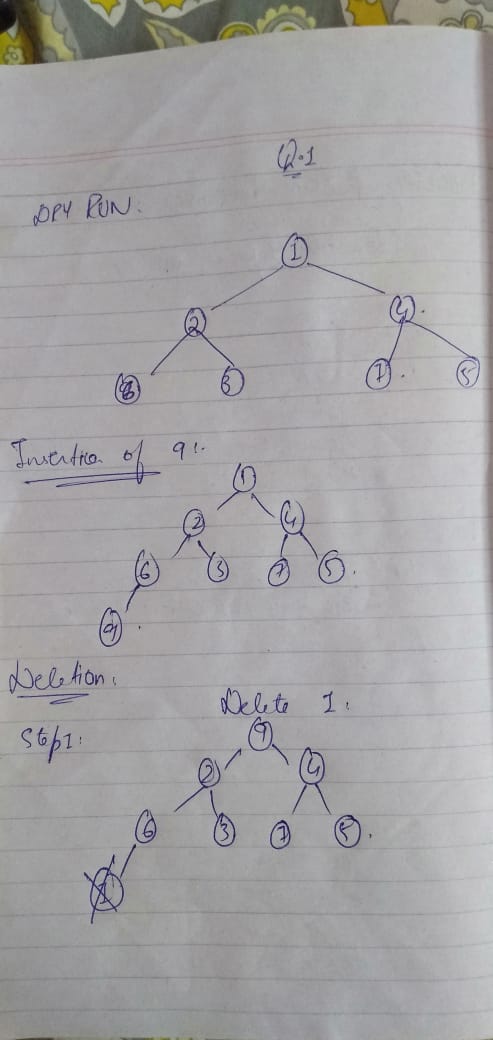 Q.1
DRY RUN:
1
2 4
3
7 5
Insertion of 9:
1
2 4
6 3 7 5
9
Deletion:
Delete 1:
Step1:
9
2 4
6 3 7 5
1